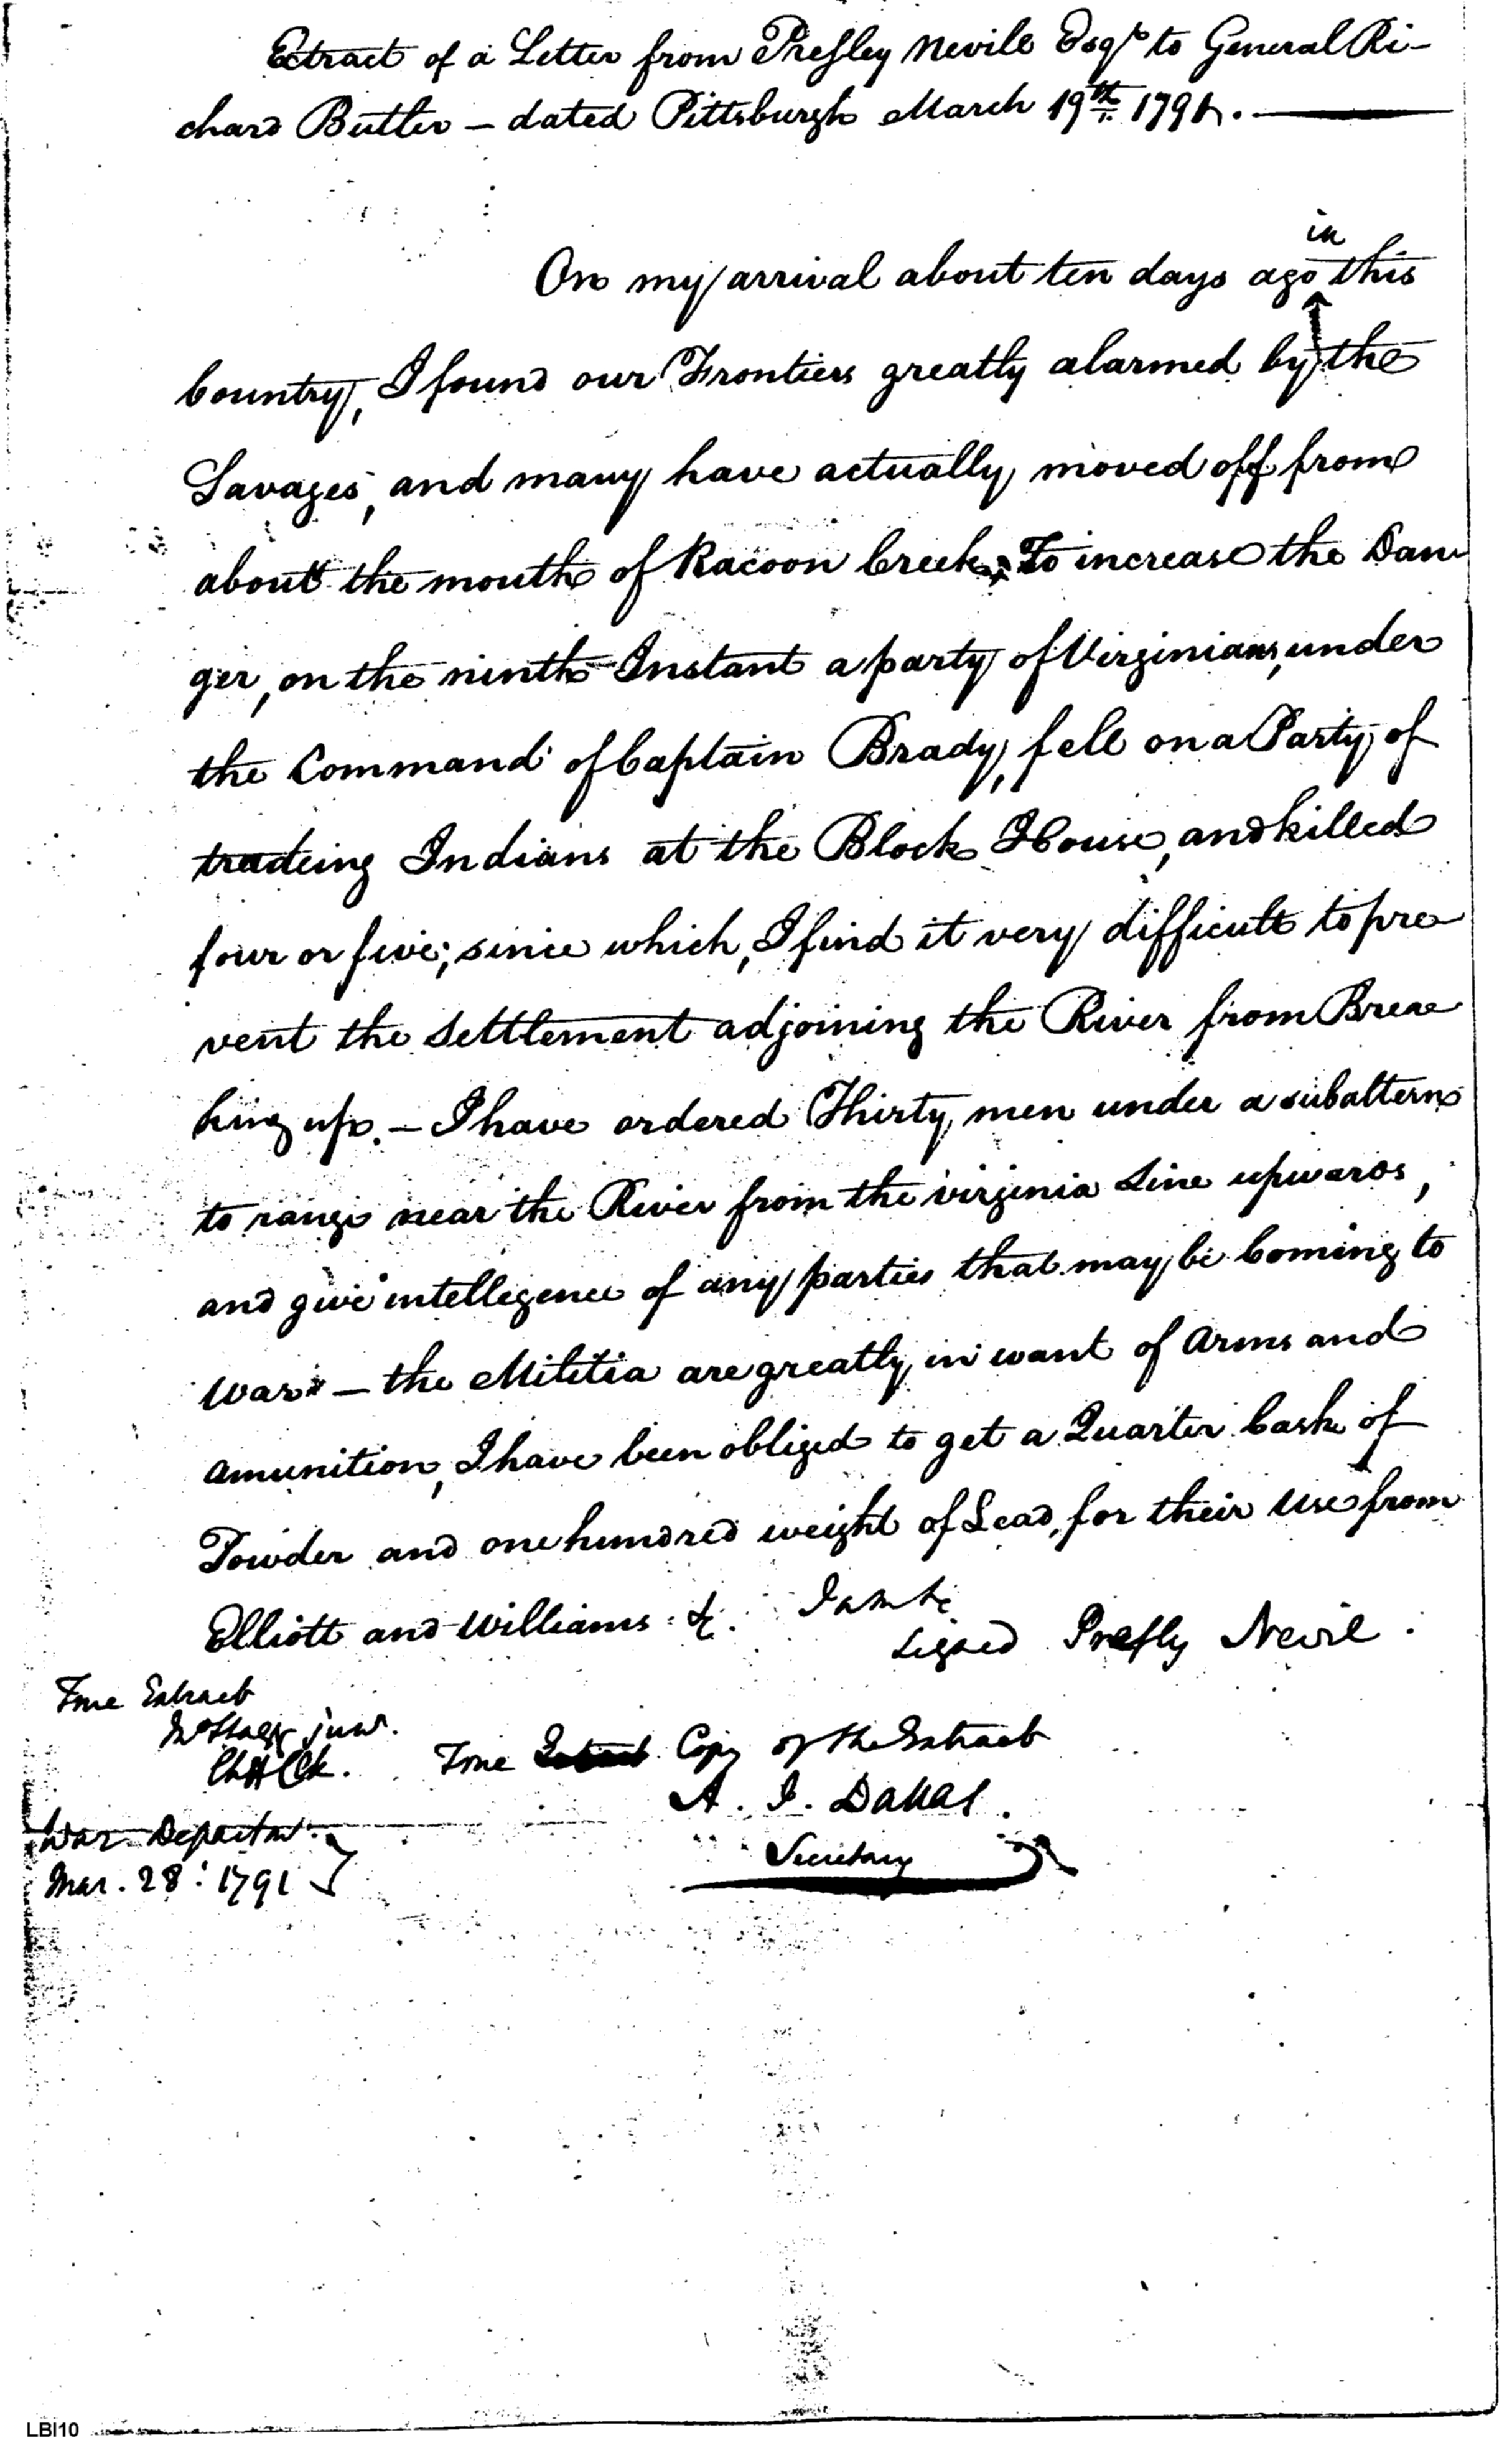 Extract of a Letter from Presley Nevile Esqr. to General Ri-
chard Butler – dated Pittsburgh March 19th. 1791. ———
in
On my arrival about ten days ago this
Country, I found our Frontiers greatly alarmed by the
Savages, and many have actually moved off from
about the mouth of Racoon Creek. To increase the Dan
ger, on the ninth Instant a party of Virginians, under
the Command of Captain Brady, fell on a Party of
tradeing Indians at the Block House, and killed
four or five; since which, I find it very difficult to pre
vent the Settlement adjoining the River from Brea
king up. – I have ordered Thirty men under a subaltern
to range near the River from the virginia Line upwards,
and give intellegence of any parties that may be Coming to
War. – the Militia are greatly in want of Arms and
amunition, I have been obliged to get a Quarter Cask of
Powder and one hundred weight of Lead, for their Use from
Elliott and Williams &c. I am &c
signed Presly Nevil.
True Extract
Jno Stagg junr.
Chf Clk.
True Extract Copy of the Extract
A. J. Dallas.
Secretary
War Departmt.
Mar. 28: 1791
LBI10